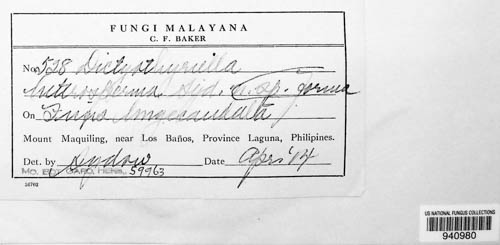 FUNGI MALAYANA
C. F. BAKER
No. 528 Dictyothyriella
heterosperma Syd. n. sp. forma
On
Mount Maquiling, near Los Baños, Province Laguna, Philipines.
Det. by Sydow Date Apr. '14
MO. BOT. GARD. HERB. 59963
US NATIONAL FUNGUS COLLECTIONS
940980